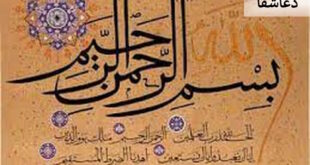 دعاشفا
بسم الله الرحمن الرحيم
الحمد لله رب العالمين الرحمن الرحيم مالك يوم الدين
إياك نعبد وإياك نستعين اهدنا الصراط المستقيم